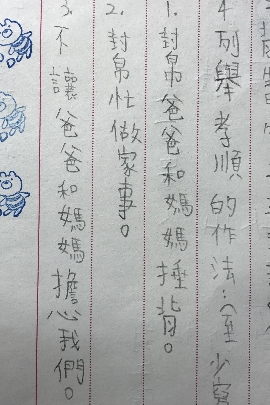 4.列舉孝順的作法:(至少寫
1.幫爸爸和媽媽捶背。
2.幫忙做家事。
3.不讓爸爸和媽媽擔心我們。